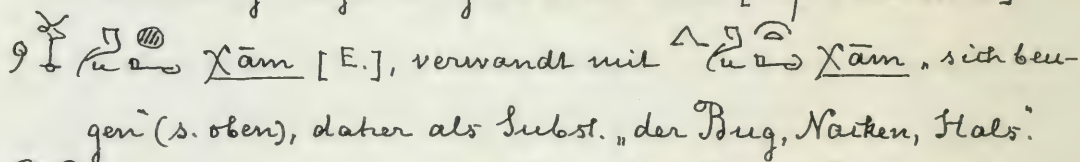 χām [E.], verwandt mit χām „sich beu-
gen“ (s. oben), daher als Subst. „der Bug, Nacken, Hals“.